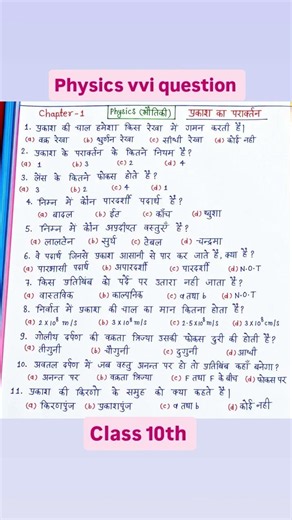 Physics vvi question
Chapter-1 Physics (भौतिकी) प्रकाश का परावर्तन
1. प्रकाश की चाल हमेशा किस रेखा में गमन करती है।
(a) वक्र रेखा (b) घुर्णन रेखा (c) सीधी रेखा (d) कोई नही
2. प्रकाश के परावर्तन के कितने नियम है?
(a) 1 (b) 3 (c) 2 (d) 4
3. लेंस के कितने फोकस होते है?
(a) 3 (b) 2 (c) 4 (d) 1
4. निम्न में कौन पारदर्शी पदार्थ है?
(a) बादल (b) ईट (c) काँच (d) धुआ
5. निम्न में कौन अप्रदीप्त वस्तुएँ है?
(a) लालटेन (b) सुर्य (c) टेबल (d) चन्द्रमा
6. वे पदार्थ जिनसे प्रकाश आसानी से पार कर जाते है, क्या है?
(a) पारभासी पदार्थ (b) अपारदर्शी (c) पारदर्शी (d) N.O.T
7. किस प्रतिबिंब को पर्दे पर उतारा नहीं जाता है?
(a) वास्तविक (b) काल्पनिक (c) a तथा b (d) N.O.T
8. निर्वात में प्रकाश की चाल का मान कितना होता है?
(a) 2 x 10⁸ m/s (b) 3 x 10⁸ m/s (c) 2.5 x 10⁸ m/s (d) 3 x 10⁸ cm/s
9. गोलीय दर्पण की वक्रता त्रिज्या उसकी फोकस दुरी की होती है?
(a) तीगुनी (b) चौगुनी (c) दुगुनी (d) आधी
10. अवतल दर्पण में जब वस्तु अनन्त पर हो तो प्रतिबिंब कहाँ बनेगा?
(a) अनन्त पर (b) वक्रता त्रिज्या (c) F तथा F के बीच (d) फोकस पर
11. प्रकाश की किरणो के समुह को क्या कहते है।
(a) किरणपुंज (b) प्रकाशपुंज (c) a तथा b (d) कोई नही
Class 10th